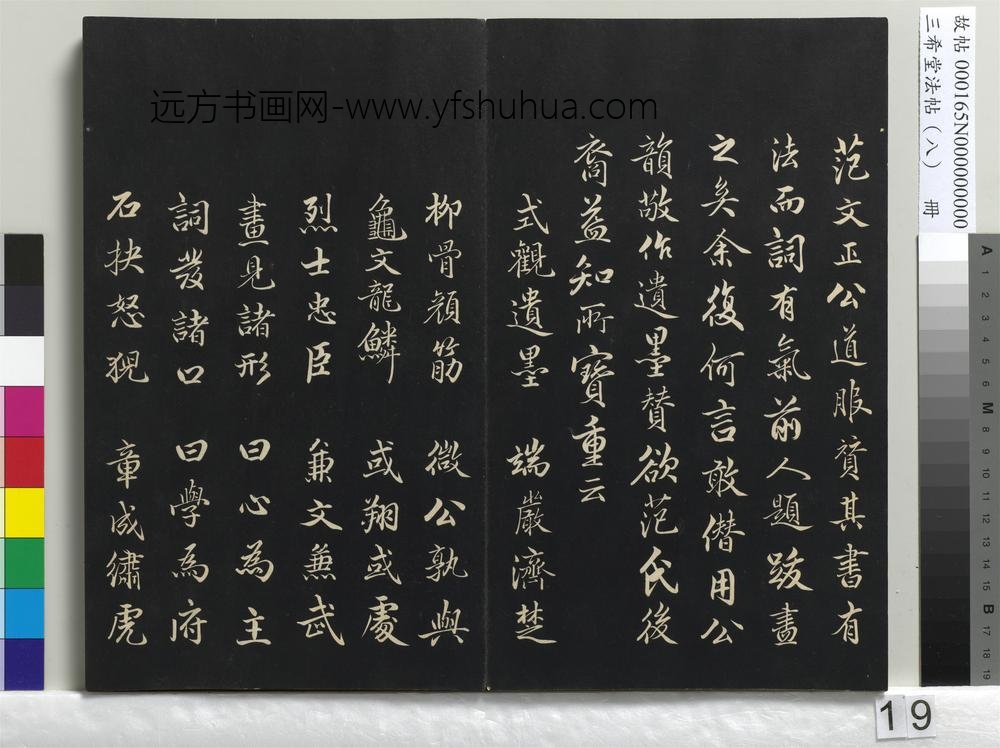 范文正公道服賛其書有
法而詞有氣前人題跋盡
之矣余復何言敢僣用公
韻敬作遺墨賛欲范氏後
裔益知所寳重云
式觀遺墨 端嚴濟楚
柳骨顔筋 微公孰與
龜文龍鱗 或翔或處
烈士忠臣 兼文兼武
畫見諸形 曰心為主
詞發諸口 曰學為府
石抉怒猊 章成繡虎
远方书画网-www.yfshuhua.com
故帖 000165N000000000
三希堂法帖（八） 冊
19
A 1 2 3 4 5 6 M 8 9 10 11 12 13 14 15 B 17 18 19